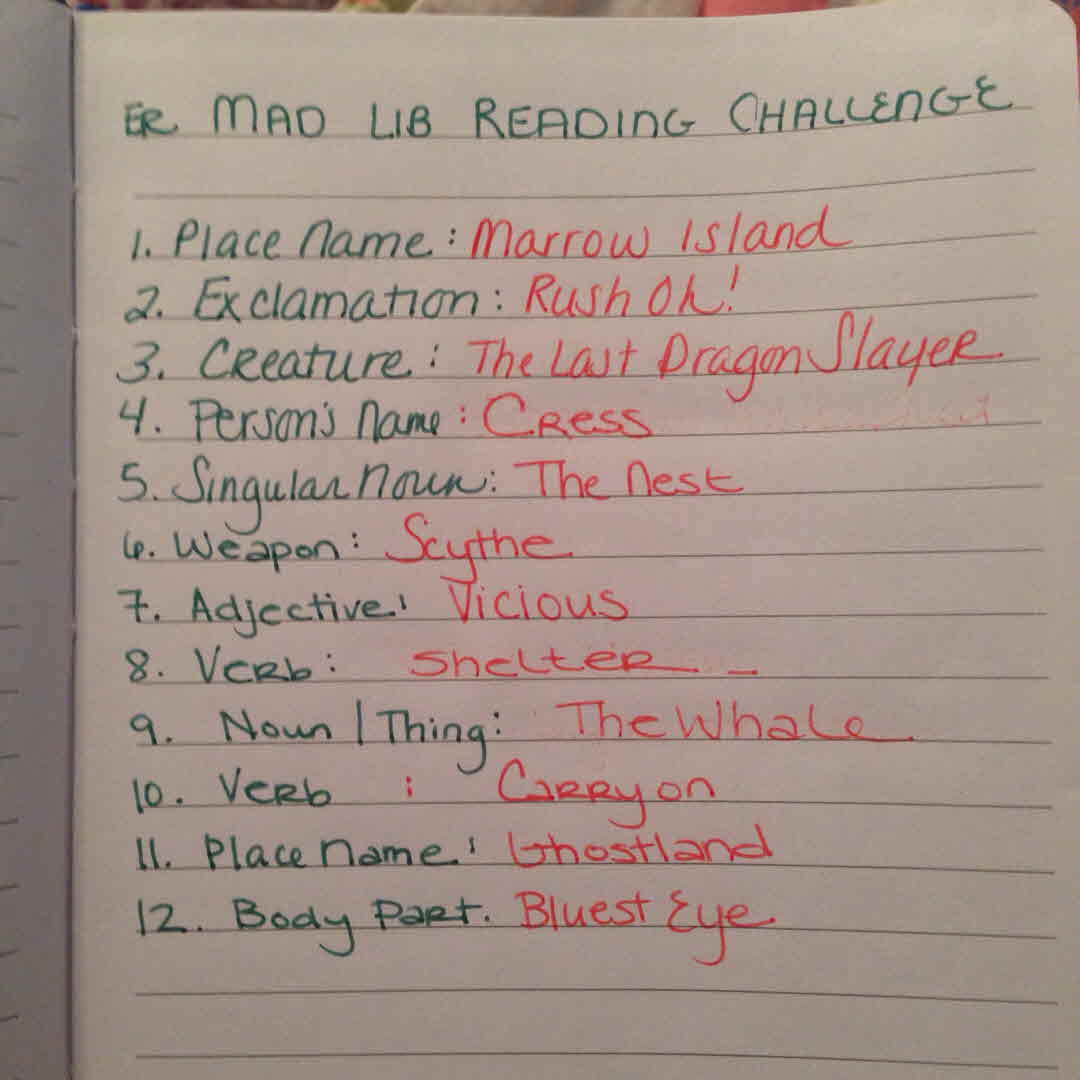 ER MAD LIB READING CHALLENGE
1. Place Name: Marrow Island
2. Exclamation: Rush Oh!
3. Creature: The Last Dragon Slayer
4. Person's Name: Cress
5. Singular Noun: The Nest
6. Weapon: Scythe
7. Adjective: Vicious
8. Verb: Shelter _
9. Noun | Thing: The Whale
10. Verb : Carry on
11. Place Name: Ghostland
12. Body Part. Bluest Eye